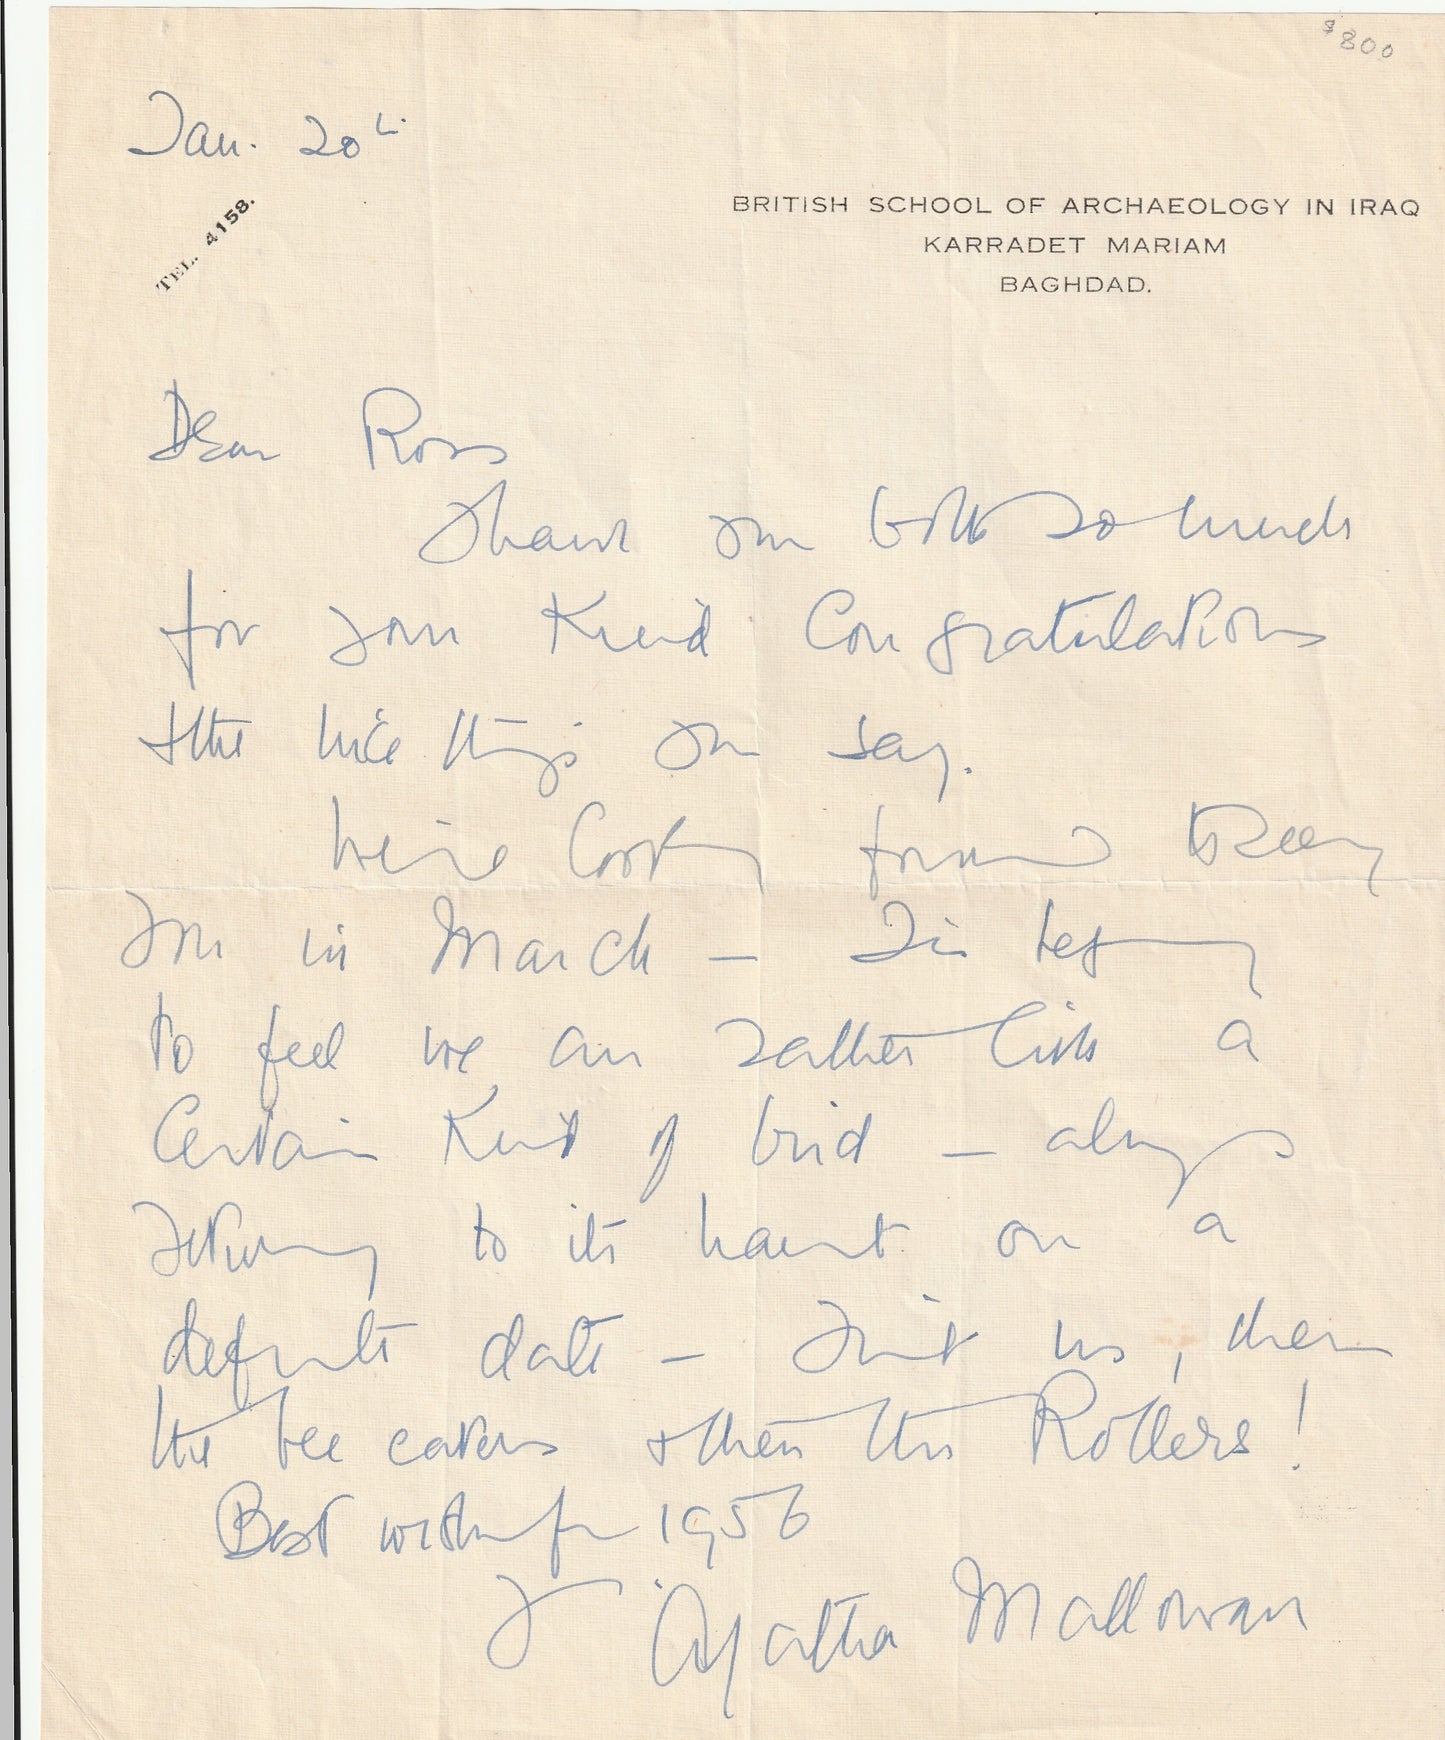 $800
Jan. 20th
TEL. 4158.
BRITISH SCHOOL OF ARCHAEOLOGY IN IRAQ
KARRADET MARIAM
BAGHDAD.
Dear Ross
Thank you both so much
for your kind Congratulations
& the nice things you say.
We're looking forward to seeing
you in March — I'm beginning
to feel we are rather like a
certain kind of bird — always
returning to its haunt on a
definite date — first us, then
the bee eaters & then the Rollers!
Best wishes for 1956
Agatha Mallowan